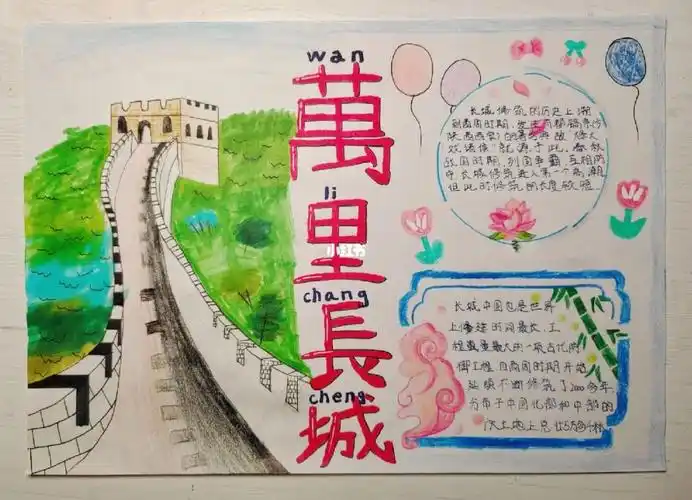 wan
萬
li
里
chang
長
cheng
城
小红书
长城修筑的历史上溯
到西周时期,发生
的著名典故“烽火
戏诸侯”就源于此。春秋
战国时期,列国争霸,互相防
守,长城修筑进入第一个高潮,
但此时修筑的长度较短
长城,中国也是世界
上修建时间最长、工
程数量最大的一项古代防
御工程,自西周时期开始
延续不断修筑了2000多年
分布于中国北部和中部的
广大土地上,总计5万多千米